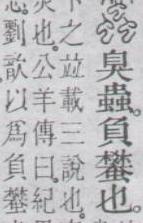 臭蟲。負蠜也。
之竝載三說也
也。公羊傳曰。紀
劉歆以爲負蠜